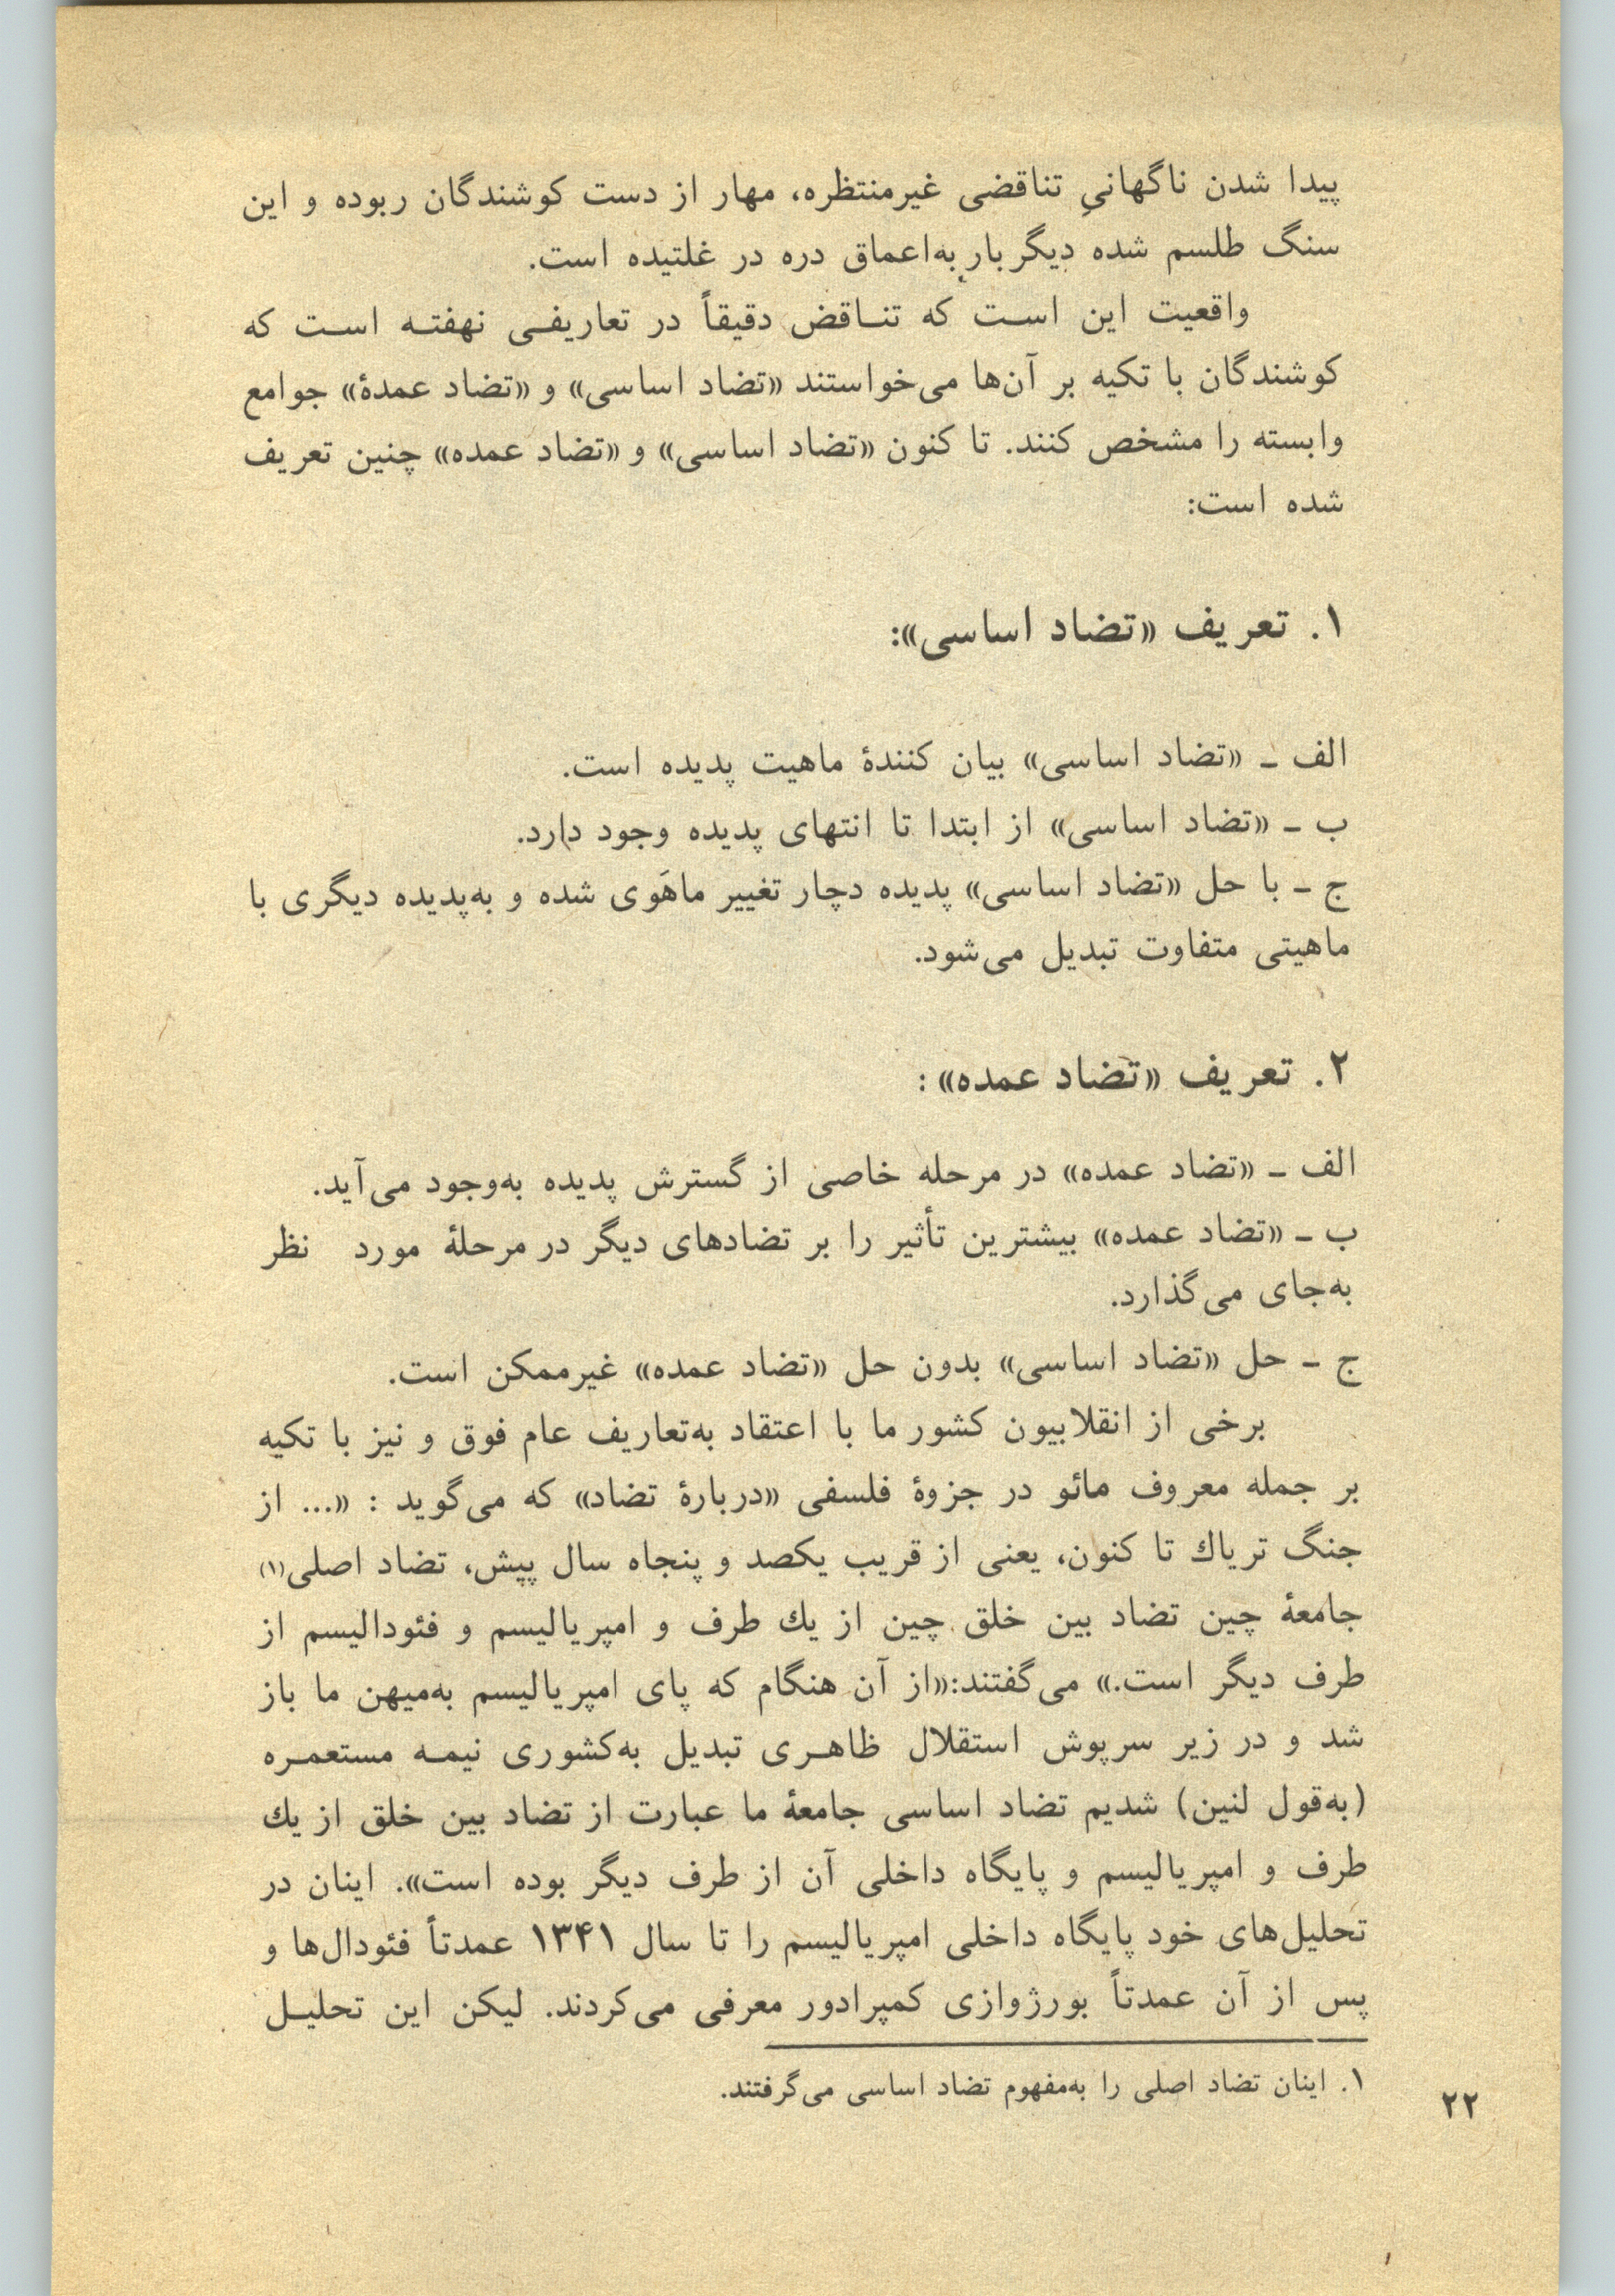 پیدا شدن ناگهانیِ تناقضی غیرمنتظره، مهار از دست کوشندگان ربوده و این
سنگ طلسم شده دیگر بار به‌اعماق دره در غلتیده است.
واقعیت این است که تناقض دقیقاً در تعاریفی نهفته است که
کوشندگان با تکیه بر آن‌ها می‌خواستند «تضاد اساسی» و «تضاد عمدهٔ» جوامع
وابسته را مشخص کنند. تا کنون «تضاد اساسی» و «تضاد عمده» چنین تعریف
شده است:
۱. تعریف «تضاد اساسی»:
الف ـ «تضاد اساسی» بیان کنندهٔ ماهیت پدیده است.
ب ـ «تضاد اساسی» از ابتدا تا انتهای پدیده وجود دارد.
ج ـ با حل «تضاد اساسی» پدیده دچار تغییر ماهَوی شده و به‌پدیده دیگری با
ماهیتی متفاوت تبدیل می‌شود.
۲. تعریف «تضاد عمده»:
الف ـ «تضاد عمده» در مرحله خاصی از گسترش پدیده به‌وجود می‌آید.
ب ـ «تضاد عمده» بیشترین تأثیر را بر تضادهای دیگر در مرحلهٔ مورد نظر
به‌جای می‌گذارد.
ج ـ حل «تضاد اساسی» بدون حل «تضاد عمده» غیرممکن است.
برخی از انقلابیون کشور ما با اعتقاد به‌تعاریف عام فوق و نیز با تکیه
بر جمله معروف مائو در جزوهٔ فلسفی «دربارهٔ تضاد» که می‌گوید : «... از
جنگ تریاك تا کنون، یعنی از قریب یکصد و پنجاه سال پیش، تضاد اصلی(۱)
جامعهٔ چین تضاد بین خلق چین از یك طرف و امپریالیسم و فئودالیسم از
طرف دیگر است.» می‌گفتند:«از آن هنگام که پای امپریالیسم به‌میهن ما باز
شد و در زیر سرپوش استقلال ظاهری تبدیل به‌کشوری نیمه مستعمره
(به‌قول لنین) شدیم تضاد اساسی جامعهٔ ما عبارت از تضاد بین خلق از یك
طرف و امپریالیسم و پایگاه داخلی آن از طرف دیگر بوده است». اینان در
تحلیل‌های خود پایگاه داخلی امپریالیسم را تا سال ۱۳۴۱ عمدتاً فئودال‌ها و
پس از آن عمدتاً بورژوازی کمپرادور معرفی می‌کردند. لیکن این تحلیل
۱. اینان تضاد اصلی را به‌مفهوم تضاد اساسی می‌گرفتند.
۲۲